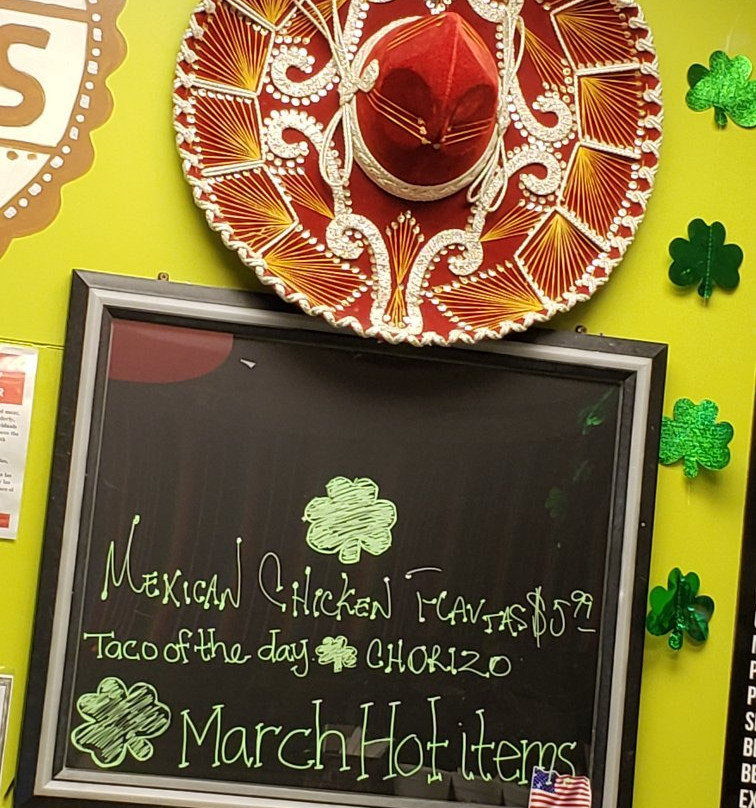 S
MEXICAN CHICKEN FLAVTAS $5.99
Taco of the day CHORIZO
March Hot items